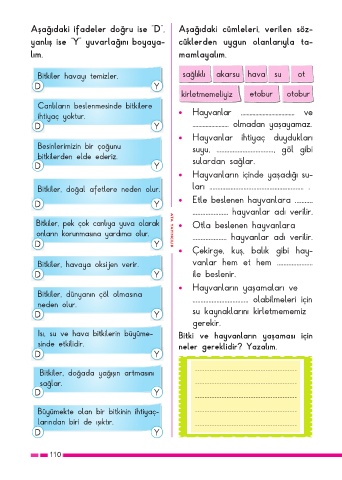 Aşağıdaki ifadeler doğru ise "D",
yanlış ise "Y" yuvarlağını boyaya-
lım.
Bitkiler havayı temizler.
D Y
Canlıların beslenmesinde bitkilere
ihtiyaç yoktur.
D Y
Besinlerimizin bir çoğunu
bitkilerden elde ederiz.
D Y
Bitkiler, doğal afetlere neden olur.
D Y
Bitkiler, pek çok canlıya yuva olarak
onların korunmasına yardımcı olur.
D Y
Bitkiler, havaya oksijen verir.
D Y
Bitkiler, dünyanın çöl olmasına
neden olur.
D Y
Isı, su ve hava bitkilerin büyüme-
sinde etkilidir.
D Y
Bitkiler, doğada yağışın artmasını
sağlar.
D Y
Büyümekte olan bir bitkinin ihtiyaç-
larından biri de ışıktır.
D Y
Aşağıdaki cümleleri, verilen söz-
cüklerden uygun olanlarıyla ta-
mamlayalım.
sağlıklı akarsu hava su ot
kirletmemeliyiz etobur otobur
• Hayvanlar ........................ ve
................ olmadan yaşayamaz.
• Hayvanlar ihtiyaç duydukları
suyu, ........................, göl gibi
sulardan sağlar.
• Hayvanların içinde yaşadığı su-
ları ........................................ .
• Etle beslenen hayvanlara .........
................ hayvanlar adı verilir.
• Otla beslenen hayvanlara
................ hayvanlar adı verilir.
• Çekirge, kuş, balık gibi hay-
vanlar hem et hem ................
ile beslenir.
• Hayvanların yaşamaları ve
........................ olabilmeleri için
su kaynaklarını kirletmememiz
gerekir.
Bitki ve hayvanların yaşaması için
neler gereklidir? Yazalım.
110